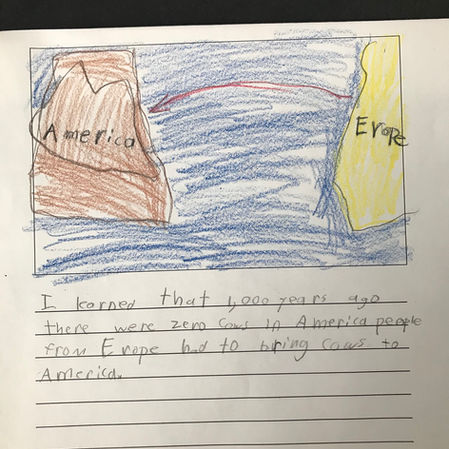 America
Erope
I learned that 1,000 years ago
there were zero cows in America people
from Erope had to bring cows to
America.